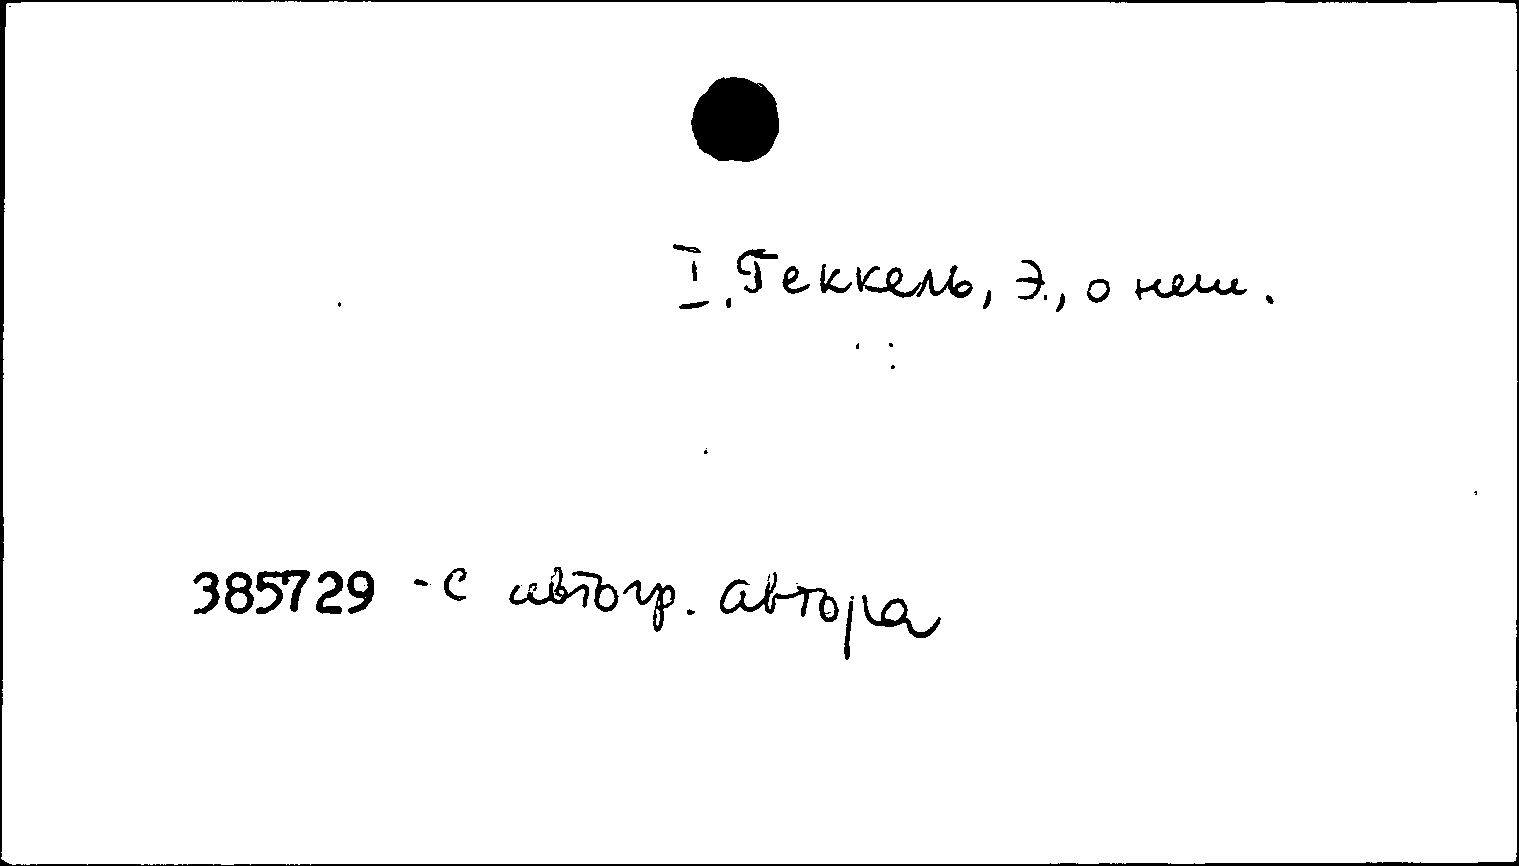 I. Геккель, Э., о нем.
385729 - с автогр. автора